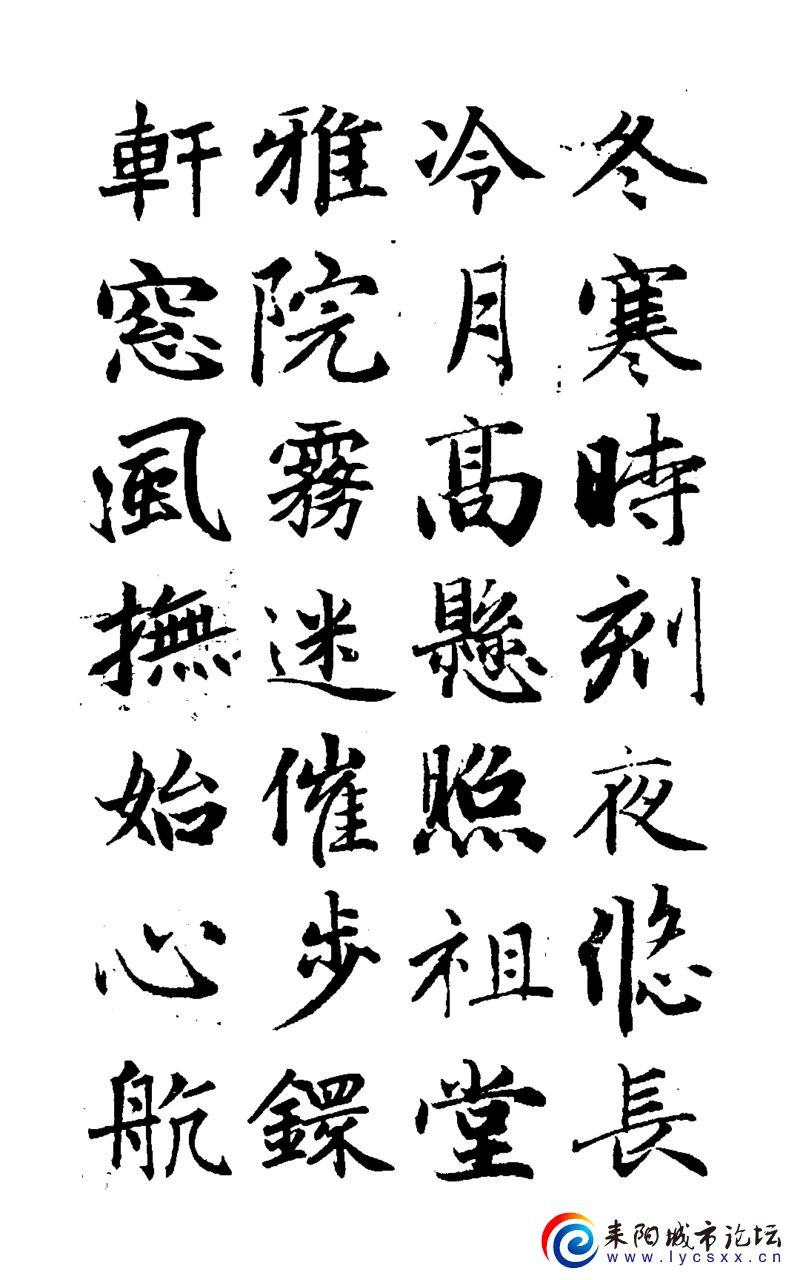 冬寒時刻夜悠長
冷月髙懸照祖堂
雅院霧迷催步
軒窓風撫始心航
耒阳城市论坛
www.lycsxx.cn